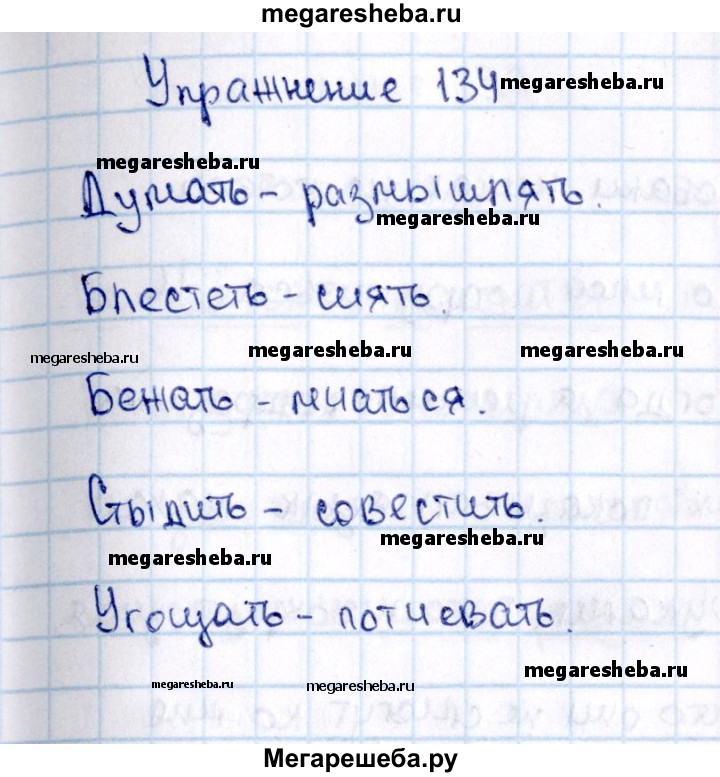 megaresheba.ru
Упражнение 134
megaresheba.ru
megaresheba.ru
Думать - размышлять.
megaresheba.ru
Блестеть - сиять.
megaresheba.ru
megaresheba.ru
megaresheba.ru
Бежать - мчаться.
Стыдить - совестить.
megaresheba.ru
megaresheba.ru
Угощать - потчевать.
megaresheba.ru
megaresheba.ru
megaresheba.ru
Мегарешеба.ру